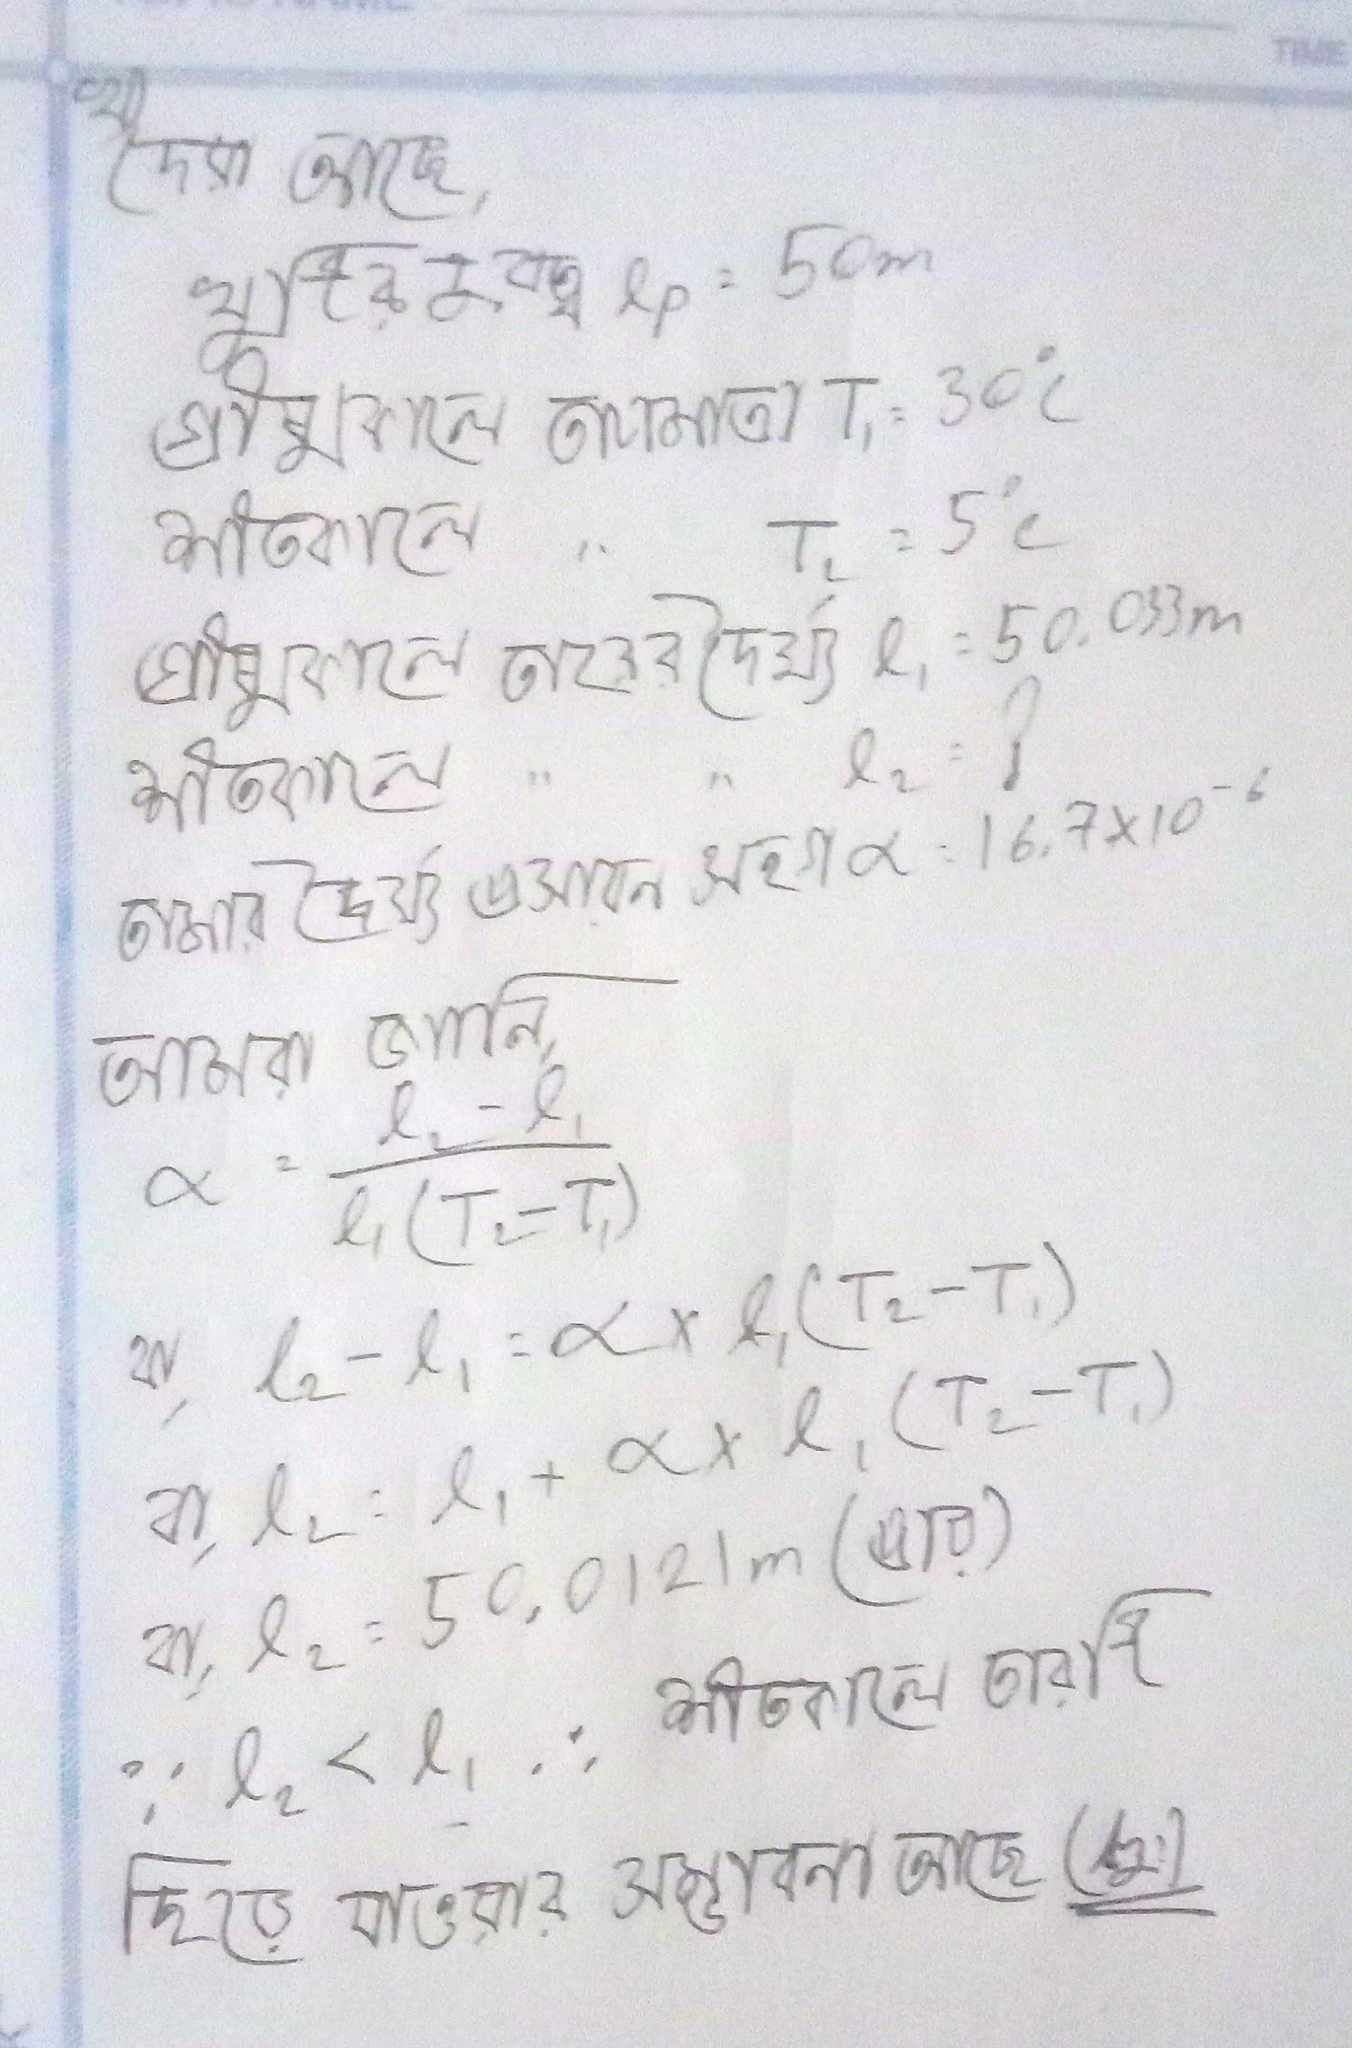 TIME
খ
দেয়া আছে,
খুটির দুরত্ব lp = 50m
গ্রীষ্মকালে তাপমাত্রা T₁ = 30°c
শীতকালে " T₂ = 5°c
গ্রীষ্মকালে তারের দৈর্ঘ্য l₁ = 50.033m
শীতকালে " " l₂ = ?
তামার দৈর্ঘ্য প্রসারন সহগ α = 16.7×10⁻⁶
আমরা জানি,
α = (l₂ - l₁) / (l₁ (T₂ - T₁))
বা, l₂ - l₁ = α × l₁ (T₂ - T₁)
বা, l₂ = l₁ + α × l₁ (T₂ - T₁)
বা, l₂ = 50.0121m (প্রায়)
∵ l₂ < l₁ ∴ শীতকালে তারটি
ছিড়ে যাওয়ার সম্ভাবনা আছে